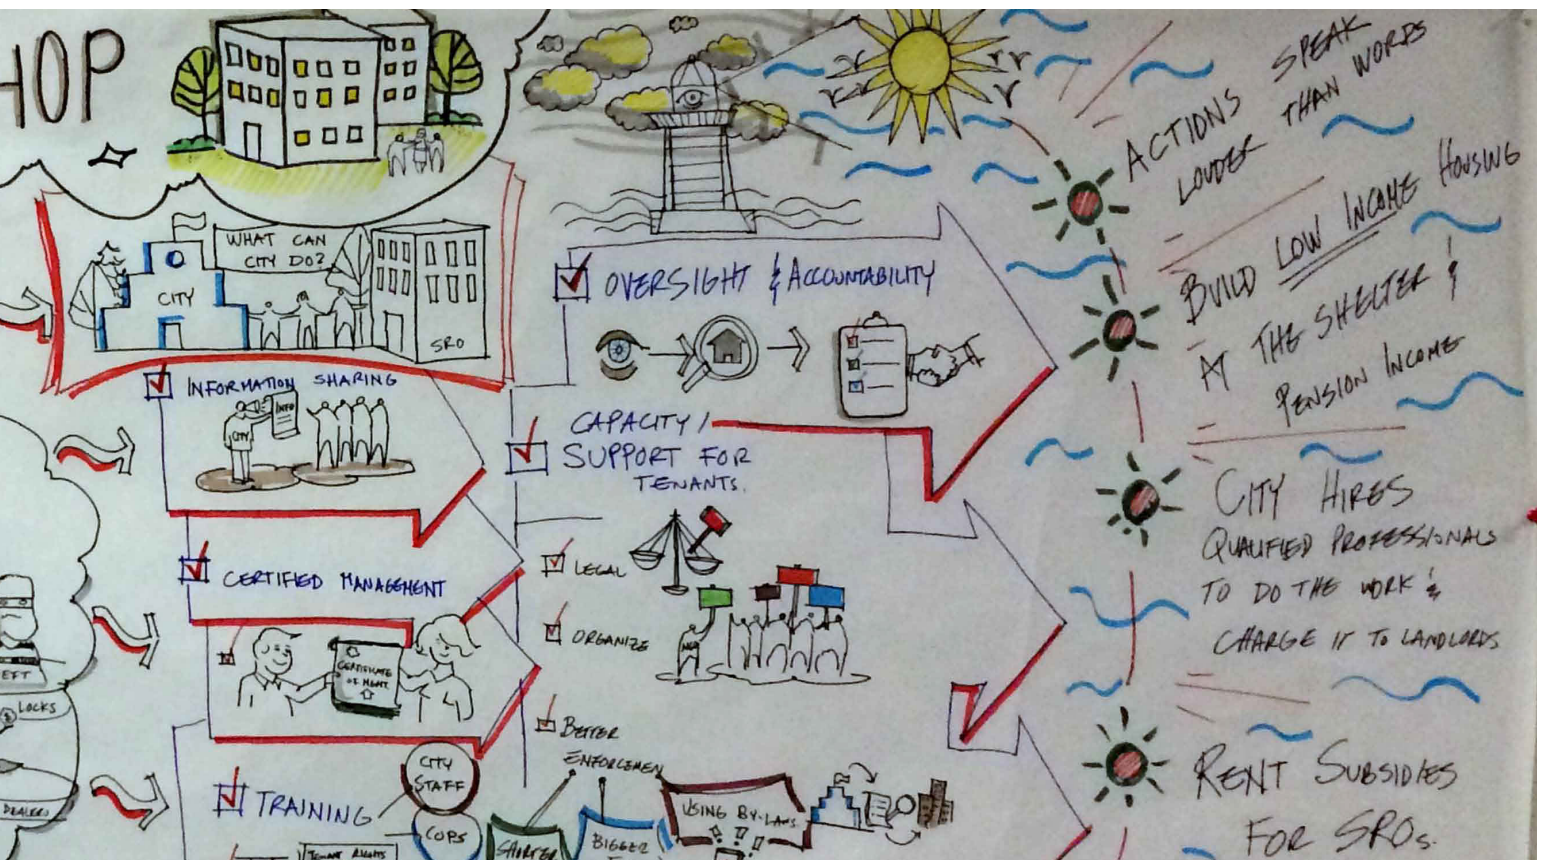 HOP
WHAT CAN
CITY DO?
CITY
SRO
INFORMATION SHARING
INFO
CITY
CERTIFIED MANAGEMENT
CERTIFICATE
OF MGMT.
TRAINING
CITY
STAFF
COPS
TENANT RIGHTS
EFT
LOCKS
DEALERS
OVERSIGHT & ACCOUNTABILITY
CAPACITY /
SUPPORT FOR
TENANTS.
LEGAL
ORGANIZE
NGO
BETTER
ENFORCEMEN
SHORTER
BIGGER
USING BY-LAWS
ACTIONS SPEAK
LOUDER THAN WORDS
BUILD LOW INCOME HOUSING
AT THE SHELTER &
PENSION INCOME
CITY HIRES
QUALIFIED PROFESSIONALS
TO DO THE WORK &
CHARGE IT TO LANDLORDS
RENT SUBSIDIES
FOR SROs.